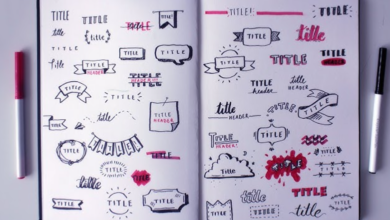 TITLE
TITLE
TITLE
TITLE
TITLE
TITLE
TITLE
TITLE
title
TITLE
TITLE
HEADER
TITLE
HEADER
TITLE
title
TITLE
HEADER
TITLE
TITLE
TITLE
title
TITLE
TITLE
TITLE!
TITLE
TITLE
title
TITLE
TITLE
title
HEADER
TITLE
header
title
HEADER
TITLE
title
HEADER
TITLE
HEADER
TITLE
TITLE
TITLE
TITLE
TITLE
title
title
TITLE
TITLE